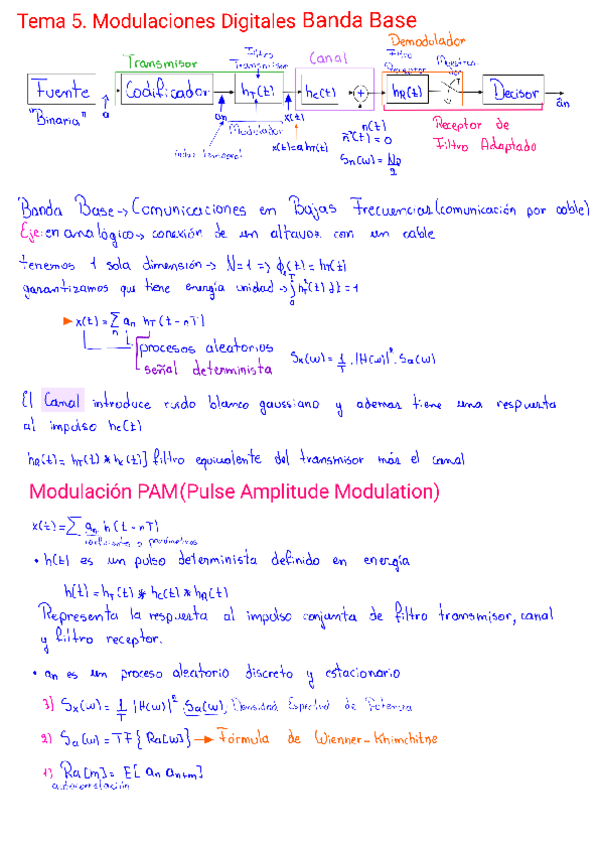 Tema 5. Modulaciones Digitales Banda Base
Demodulador
Transmisor Filtro Transmisor Canal Filtro Receptor
Fuente Codificador hT(t) hc(t) + hR(t) Decisor
"Binaria" a an x(t) ân
Modulador n(t) Receptor de
x(t)=a hT(t) n(t)=0 Filtro Adaptado
Sn(w)= N0/2
Banda Base→Comunicaciones en Bajas Frecuencias(comunicación por cable)
Eje: en analógico→ conexión de un altavoz con un cable
tenemos 1 sola dimensión→ N=1 => ϕ1(t) = hT(t)
garantizamos que tiene energía unidad →∫ hT²(t) dt=1
► x(t)=∑n an hT (t-nT)
procesos aleatorios
señal determinista
Sx(w)= 1/T · |H(w)|² · Sa(w)
El Canal introduce ruido blanco gaussiano y ademas tiene una respuesta
al impulso hc(t)
hR(t)= hT(t) * hc(t)] filtro equivalente del transmisor más el canal
Modulación PAM(Pulse Amplitude Modulation)
x(t)=∑ an h(t-nT)
• h(t) es un pulso determinista definido en energía
h(t)=hT(t) * hc(t) * hR(t)
Representa la respuesta al impulso conjunta de filtro transmisor, canal
y filtro receptor.
• an es un proceso aleatorio discreto y estacionario
3) Sx(w)= 1/T |H(w)|² Sa(w), Densidad Espectral de Potencia
2) Sa(w)=TF{Ra[w]} → Fórmula de Wienner-Khimchitne
1) Ra[m]= E[an an+m]
autocorrelación